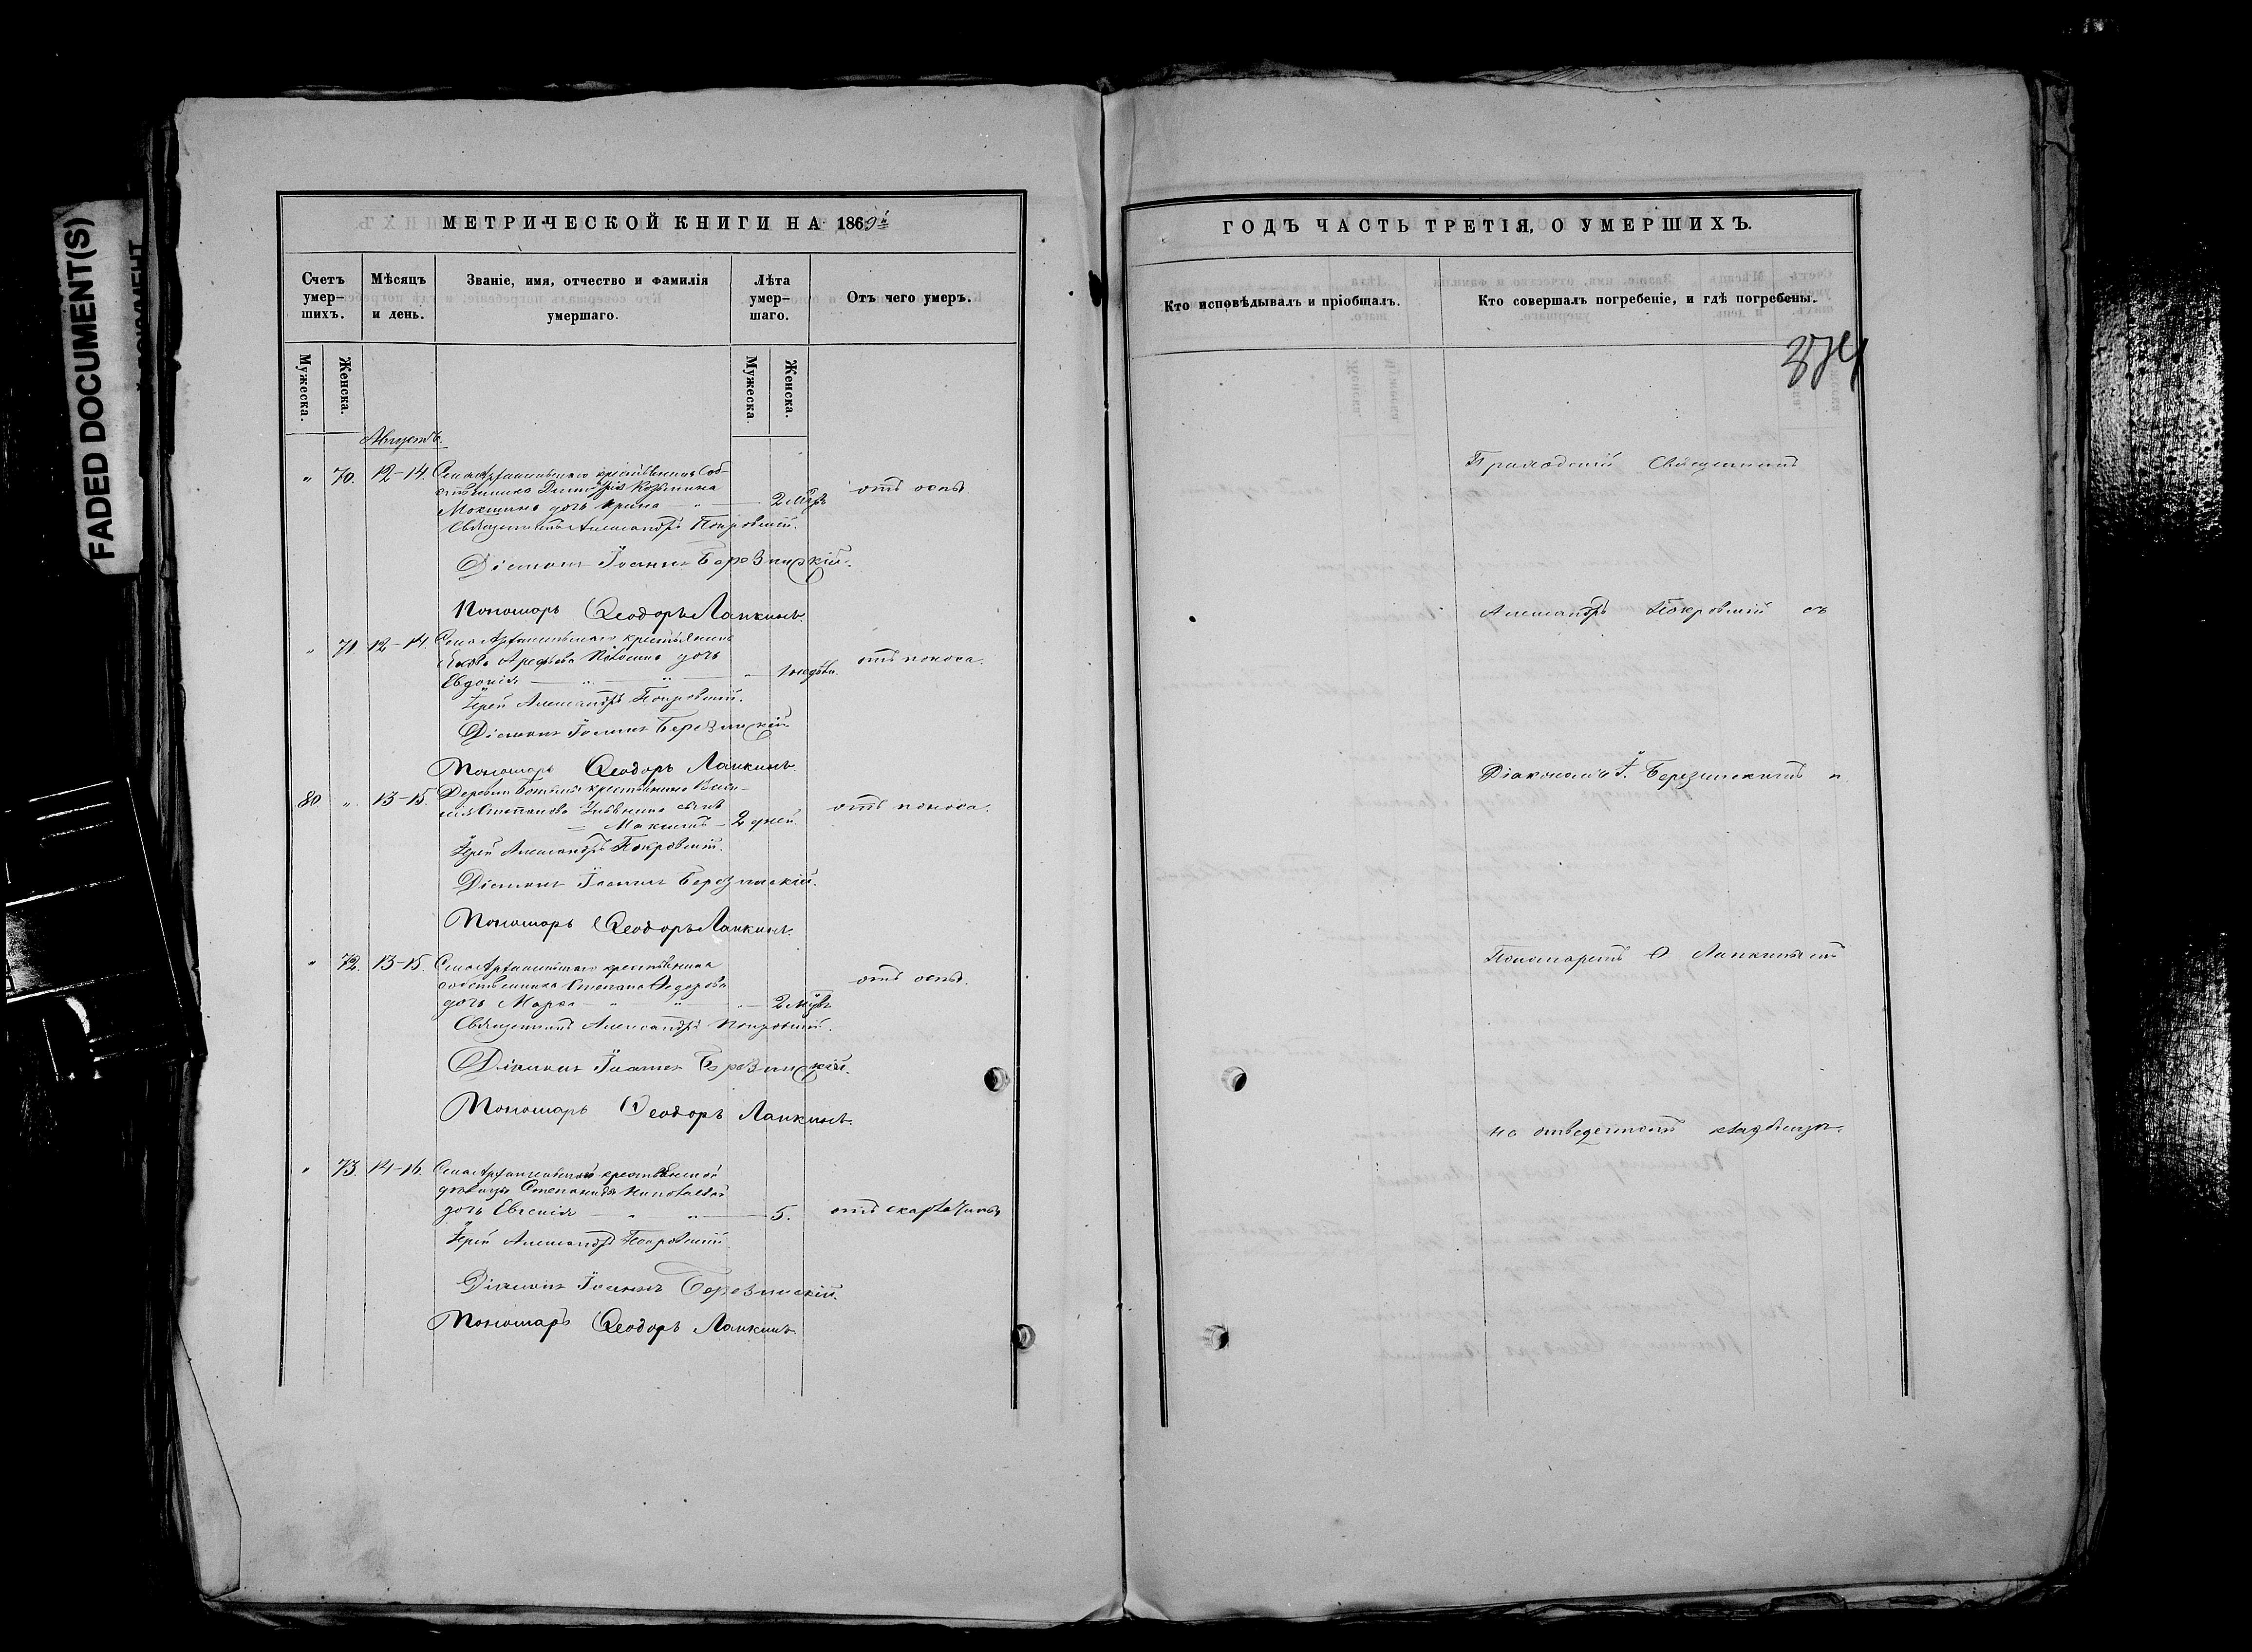 FADED DOCUMENT(S)
МЕТРИЧЕСКОЙ КНИГИ НА 1869й
Счетъ умер-шихъ.
Мѣсяцъ и день.
Званіе, имя, отчество и фамилія умершаго.
Лѣта умер-шаго.
Отъ чего умеръ.
Мужеска.
Женска.
Мужеска.
Женска.
Августъ.
" 70. 12-14. Села Архангельскаго крестьянина Соб-
ственника Димитрія Козьмина
Мокшина дочь Ирина 2 мѣс. отъ оспы.
Священникъ Александръ Покровскій.
Діаконъ Іоаннъ Березинскій.
Пономарь Ѳеодоръ Лапкинъ.
" 71. 12-14. Села Архангельскаго крестьянина
Арефьева дочь
Евдокія отъ поноса.
Іерей Александръ Покровскій.
Діаконъ Іоаннъ Березинскій
Пономарь Ѳеодоръ Лапкинъ.
80 " 13-15. Деревни крестьянина Васи-
лія Степанова сынъ
Максимъ 2 дней отъ поноса.
Іерей Александръ Покровскій.
Діаконъ Іоаннъ Березинскій.
Пономарь Ѳеодоръ Лапкинъ.
" 72. 13-15. Села Архангельскаго крестьянина
собственника Степана Ѳедорова
дочь Марѳа 2 мѣс. отъ оспы.
Священникъ Александръ Покровскій.
Діаконъ Іоаннъ Березинскій.
Пономарь Ѳеодоръ Лапкинъ.
" 73. 14-16. Села Архангельскаго крестьянской
дѣвицы Степаниды
дочь Евгенія 5. отъ скарлатины
Іерей Александръ Покровскій
Діаконъ Іоаннъ Березинскій.
Пономарь Ѳеодоръ Лапкинъ.
ГОДЪ ЧАСТЬ ТРЕТІЯ, О УМЕРШИХЪ.
Кто исповѣдывалъ и пріобщалъ.
Кто совершалъ погребеніе, и гдѣ погребены.
374
Приходскій Священникъ
Александръ Покровскій съ
Діакономъ І. Березинскимъ и
Пономаремъ Ѳ Лапкинымъ
на отведенномъ кладбищѣ.